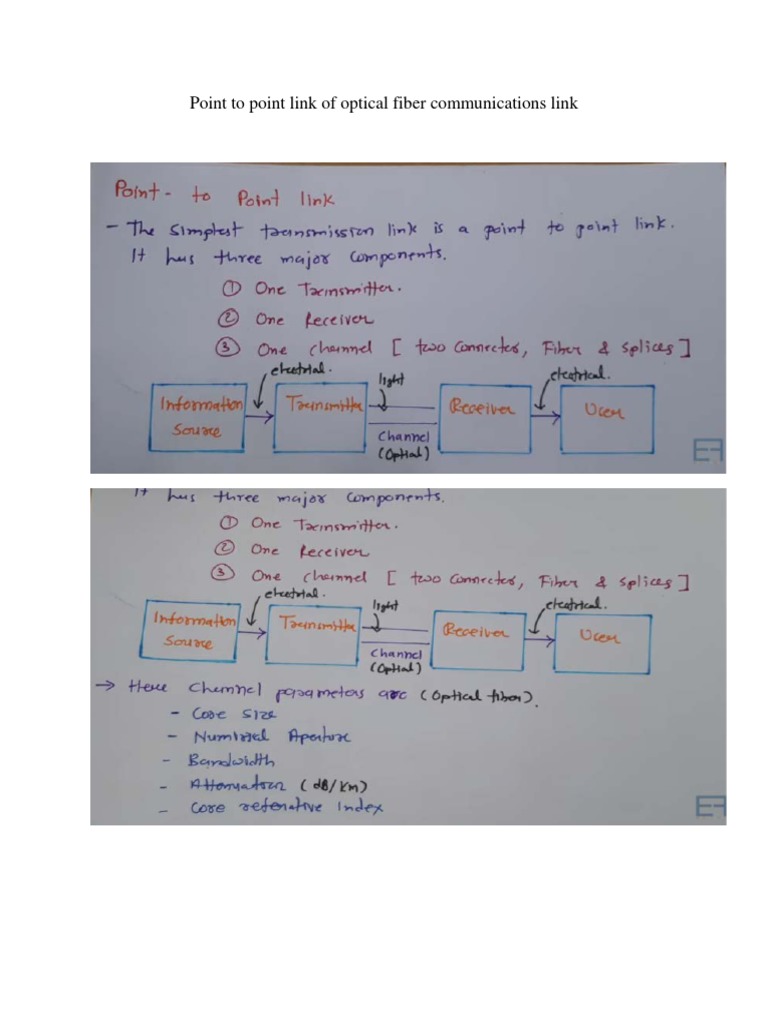 Point to point link of optical fiber communications link
Point - to Point link
- The simplest transmission link is a point to point link.
It has three major components.
① One Transmitter.
② One Receiver
③ One channel [ two connector, Fiber & splices ]
electrial.
light
electrical.
Information Source
Transmitter
Channel
(Optial)
Receiver
User
EF
It has three major components.
① One Transmitter.
② One Receiver
③ One channel [ two connector, Fiber & splices ]
electrial.
light
electrical.
Information Source
Transmitter
Channel
(Optial)
Receiver
User
→ Here channel parameters are (Optical fiber).
- Core size
- Numirial Aperture
- Bandwidth
- Attenuation (dB/Km)
- Core refenative Index
EF